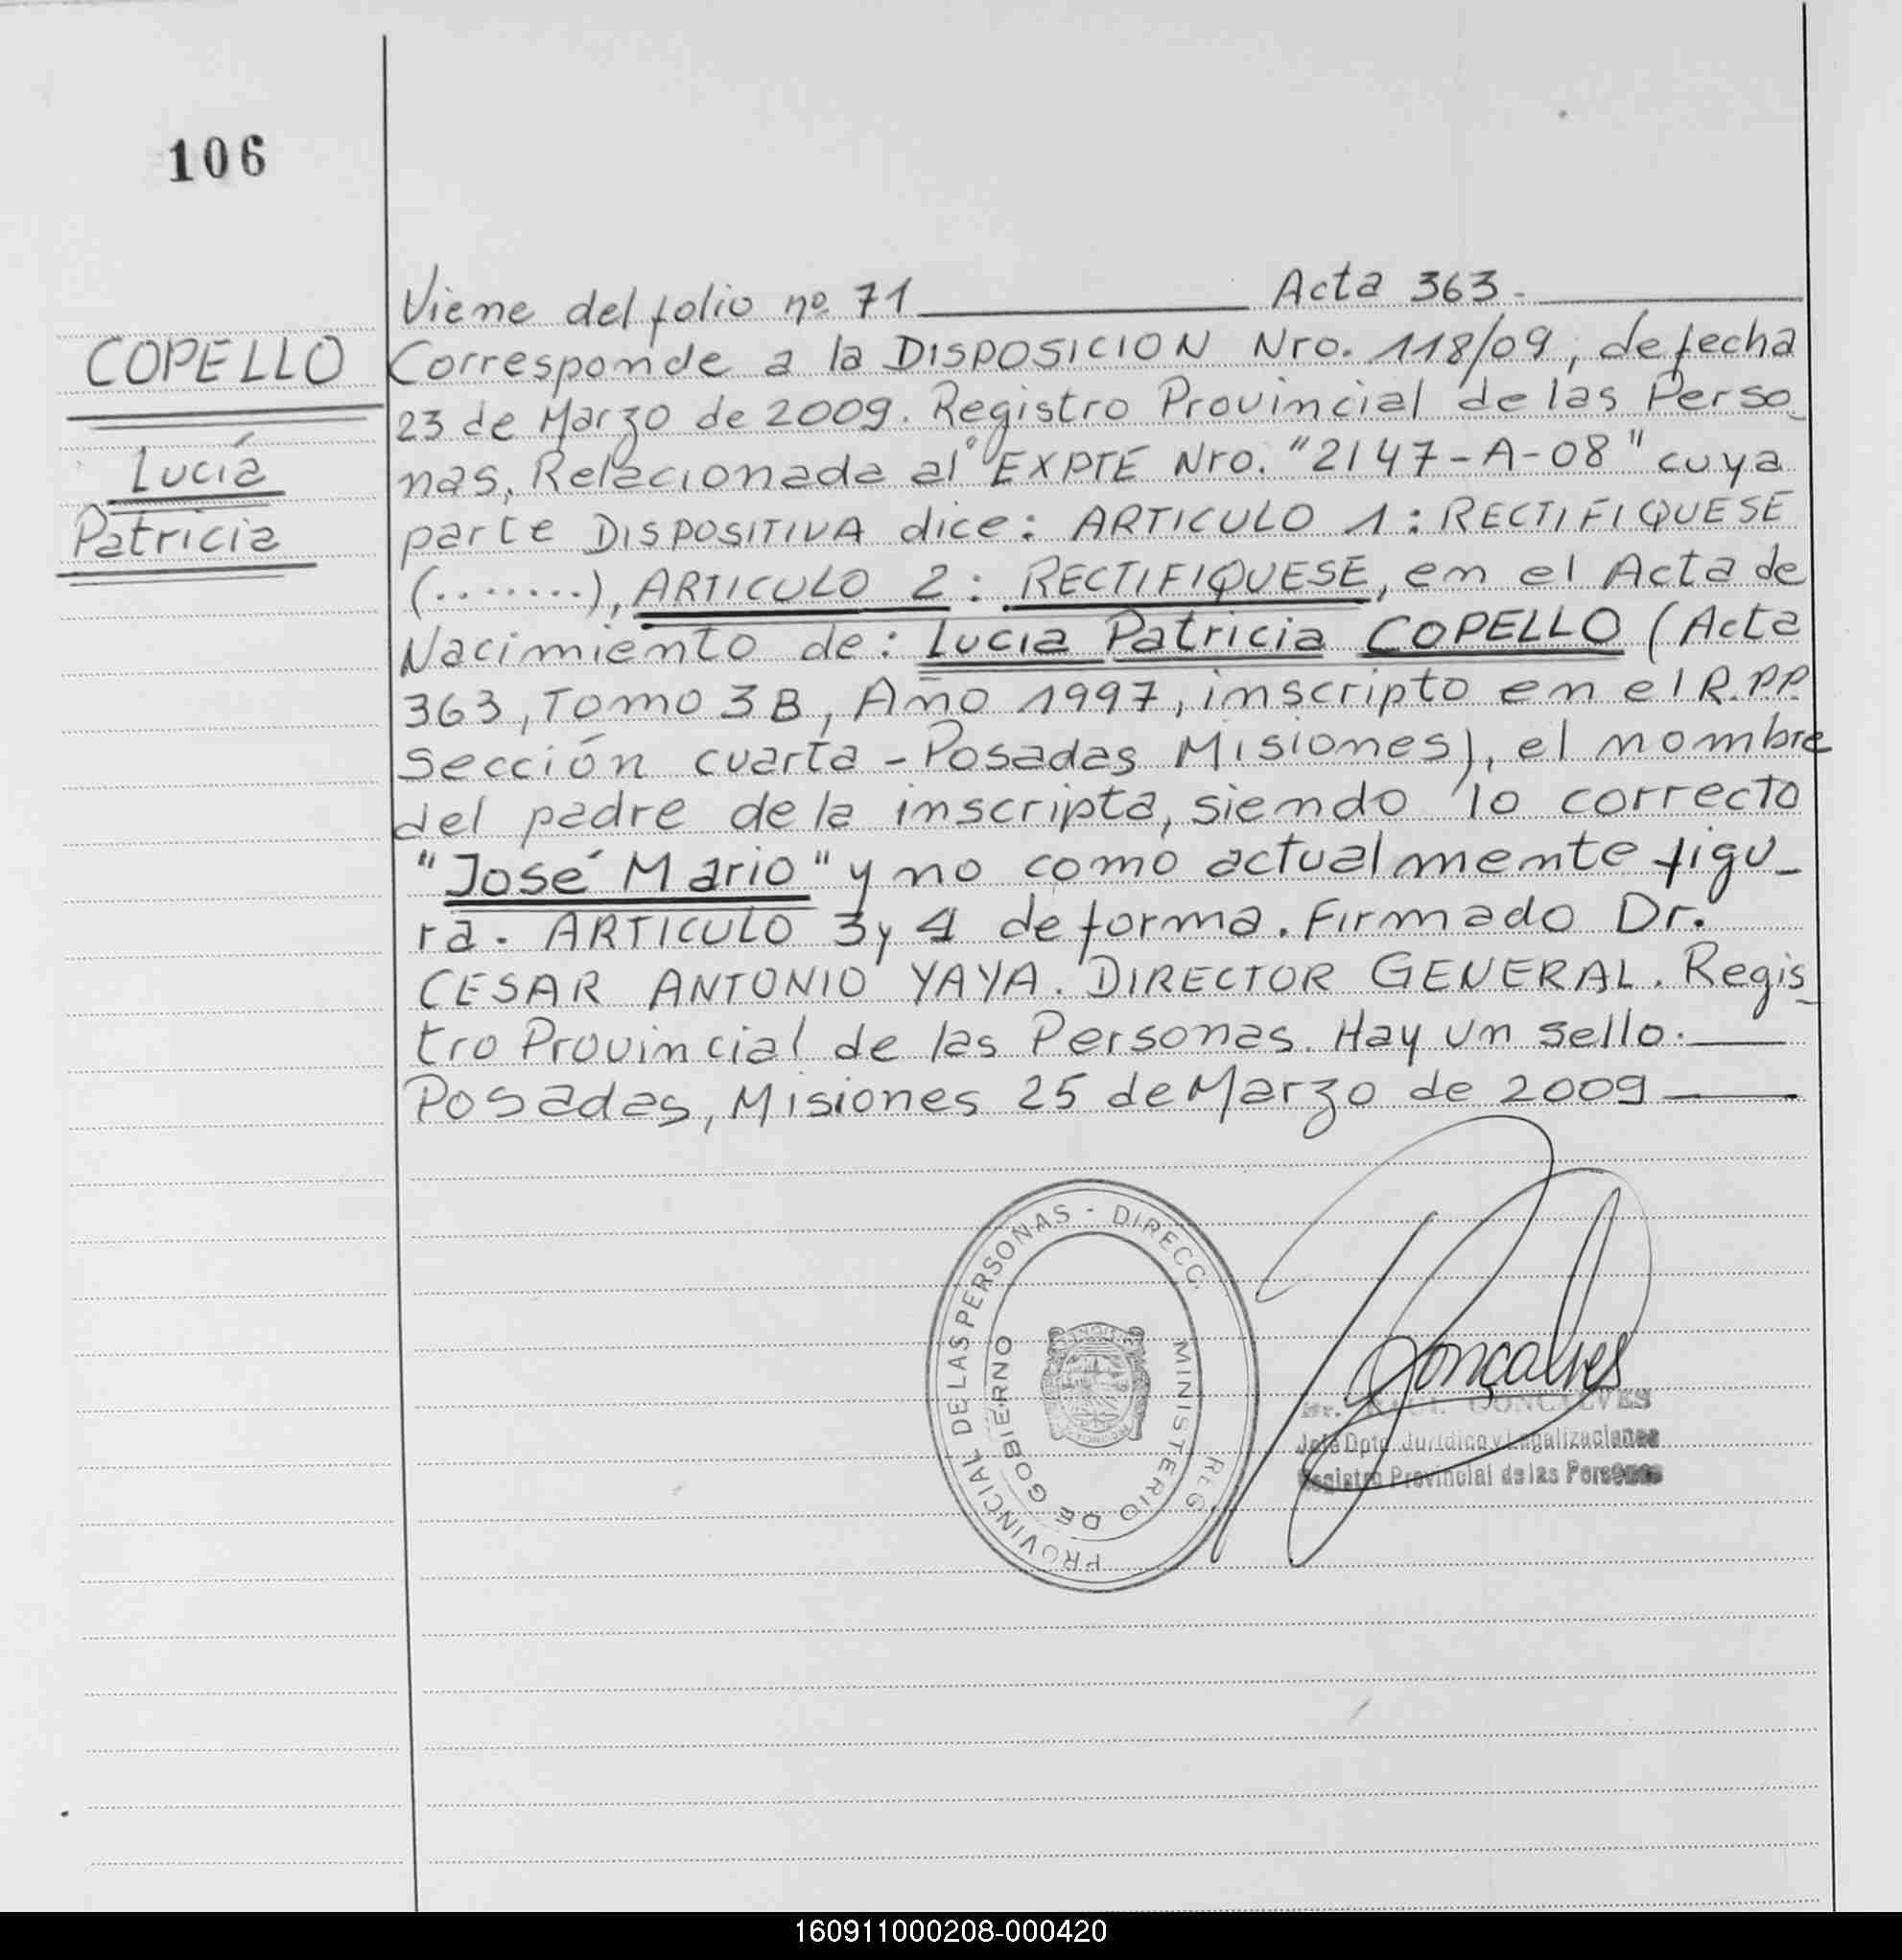 106
Viene del folio nº 71 Acta 363.
COPELLO
Lucía
Patricia
Corresponde a la DISPOSICION Nro. 118/09, de fecha
23 de Marzo de 2009. Registro Provincial de las Perso_
nas, Relacionada al EXPTE Nro. "2147-A-08" cuya
parte DISPOSITIVA dice: ARTICULO 1: RECTIFIQUESE
(........), ARTICULO 2: RECTIFIQUESE, en el Acta de
Nacimiento de: Lucia Patricia COPELLO (Acta
363, Tomo 3B, Año 1997, inscripto en el R.P.P.
Sección cuarta - Posadas Misiones), el nombre
del padre de la inscripta, siendo lo correcto
"José Mario" y no como actualmente figu_
ra. ARTICULO 3 y 4 de forma. Firmado Dr.
CESAR ANTONIO YAYA. DIRECTOR GENERAL. Regis_
tro Provincial de las Personas. Hay un sello.
Posadas, Misiones 25 de Marzo de 2009
PROVINCIAL DE LAS PERSONAS - DIRECC. REG.
MINISTERIO DE GOBIERNO
Gonçalves
RAUL GONCALVES
Jefe Dpto. Jurídico y Legalizaciones
Registro Provincial de las Personas
160911000208-000420